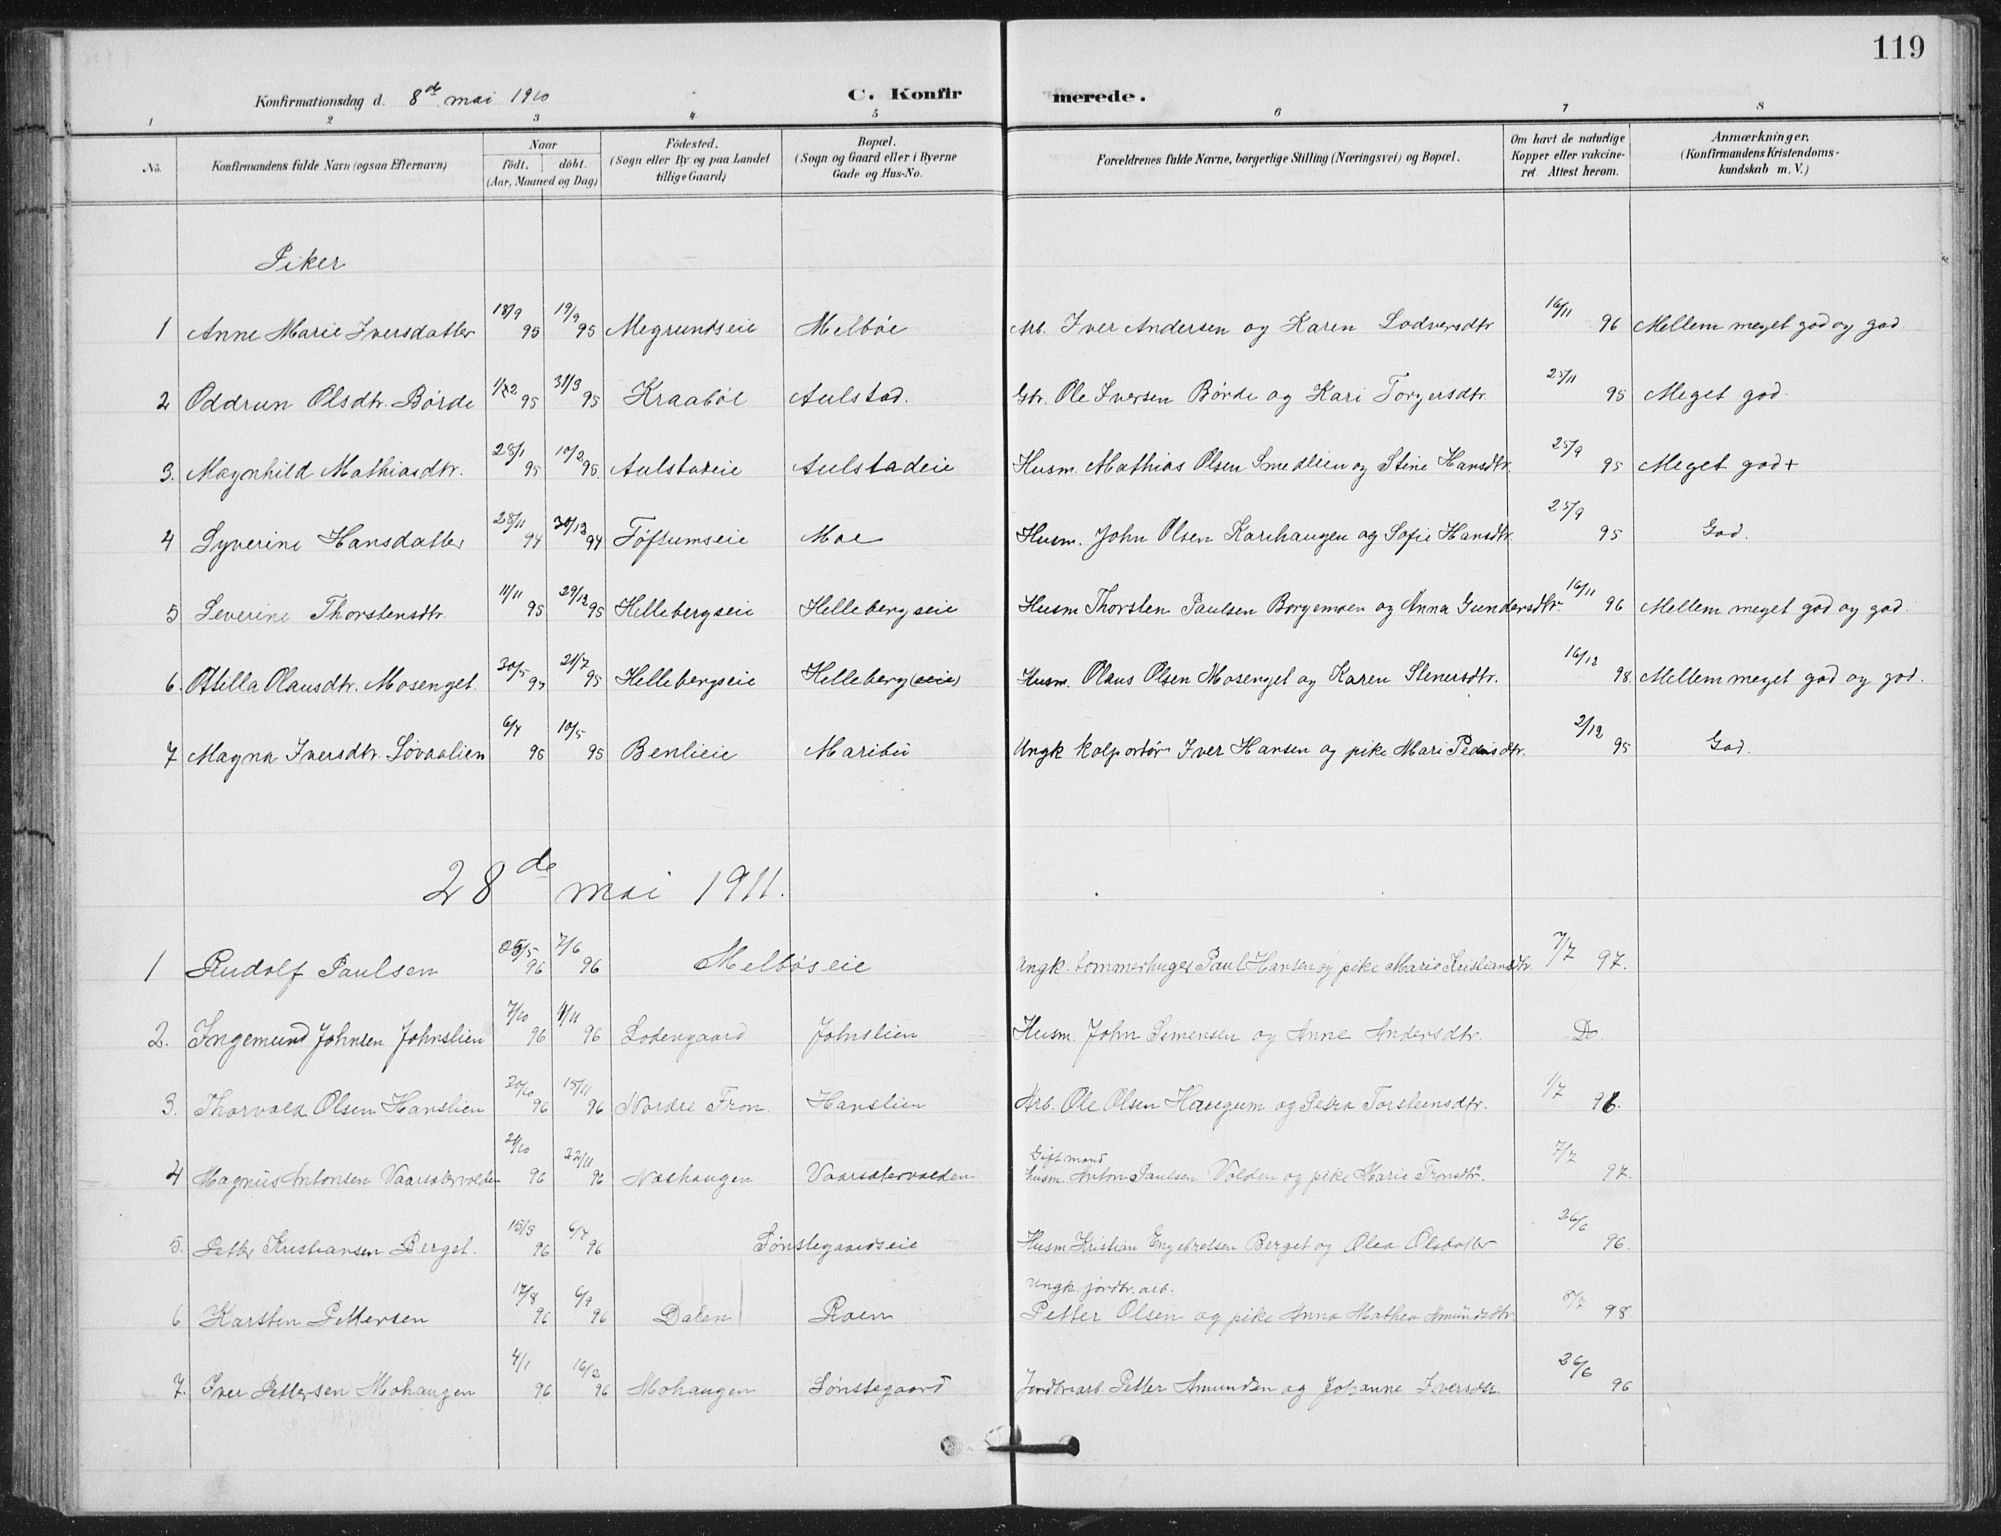 119
Konfirmationsdag d. 8de mai 1910 C. Konfirmerede.
1 2 3 4 5 6 7 8
No. Konfirmandens fulde Navn (ogsaa Efternavn) Naar født. døbt. (Aar, Maaned og Dag) Fødested. (Sogn eller By og paa Landet tillige Gaard) Bopæl. (Sogn og Gaard eller i Byerne Gade og Hus-No. Forældrenes fulde Navne, borgerlige Stilling (Næringsvei) og Bopæl. Om havt de naturlige Kopper eller vakcineret. Attest herom. Anmærkninger. (Konfirmandens Kristendomskundskab m. V.)
Piker
1 Anne Marie Iversdatter 18/9 95 19/9 95 Megrundseie Melbøe Arb. Iver Andersen og Karen Lodversdtr 16/11 96 Mellem meget god og god
2 Oddrun Olsdtr. Børde 95 31/3 95 Kraabøl Aulstad. Gbr. Ole Iversen Børde og Kari Torgersdtr. 25/11 95 Meget god.
3. Magnhild Mathiasdtr. 28/1 95 10/2 95 Aulstadeie Aulstadeie Husm. Mathias Olsen Smedlien og Stine Hansdtr. 25/9 95 Meget god +
4 Syverine Hansdatter 28/11 94 30/12 94 Føftumseie Moe Husm. John Olsen Karihaugen og Sofie Hansdtr. 25/9 95 God.
5 Severine Thorstensdtr. 11/11 95 29/12 95 Hellebergseie Hellebergseie Husm. Thorsten Paulsen Borgemoen og Anna Gundersdtr. 16/11 96 Mellem meget god og god.
6. Otilla Olausdtr. Mosenget. 30/5 95 21/7 95 Hellebergseie Helleberg(seie) Husm. Olaus Olsen Mosenget og Karen Stenersdtr. 16/12 98. Mellem meget god og god.
7 Magna Iversdtr. Løvaalien 6/4 95 10/5 95 Benlieie Maribu Ungk. kolportør Iver Hansen og pike Mari Pedersdtr. 2/12 95 God.
28de mai 1911.
1 Rudolf Paulsen 96 7/6 96 Melbøseie Ungk. tømmerhuger Paul Hansen og pike Marie Kristiansdtr. 7/7 97.
2. Ingemund Johnsen Johnslien 7/10 96 96 Lodengaard Johnslien Husm. John Simensen og Anne Andersdtr. Do
3. Thorvald Olsen Hanslien 20/10 96 15/11 96 Nordre Fron. Hanslien Arb. Ole Olsen Haugum og Petra Torstensdtr. 1/7 96.
4 Magnus Antonsen Vaarsætervolden 21/10 96 22/11 96 Næshaugen Vaarsætervolden Gift mand
husm. Anton Paulsen Volden og pike Marie Tronsdtr. 7/7 97.
5. Petter Kristiansen Berget. 15/3 96 6/4 96 Sønstegaardseie Husm. Kristian Engebretsen Berget og Olea Olsdatter 26/6 96.
6 Karsten Pettersen 17/8 96 6/9 96 Dalen Roen Ungk. jordbr. arb.
Petter Olsen og pike Anna Mathea Amundsdtr. 98.
7. Iver Pettersen Mohaugen 4/1 96 16/2 96 Mohaugen Sønstegaard Jordbrarb. Petter Amundsen og Johanne Iversdtr. 26/6 96